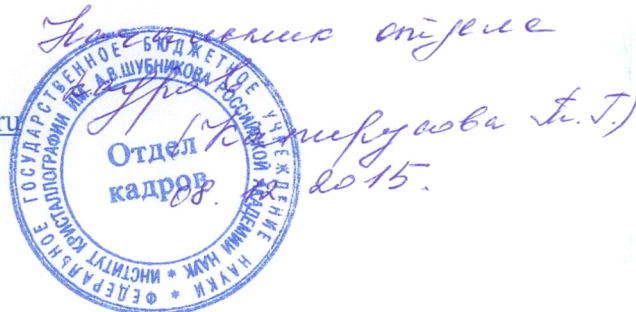 Начальник отдела
кадров
ru
08. 12 2015.
ФЕДЕРАЛЬНОЕ ГОСУДАРСТВЕННОЕ БЮДЖЕТНОЕ УЧРЕЖДЕНИЕ НАУКИ *
ИНСТИТУТ КРИСТАЛЛОГРАФИИ ИМ. А.В.ШУБНИКОВА РОССИЙСКОЙ АКАДЕМИИ НАУК *
Отдел
кадров